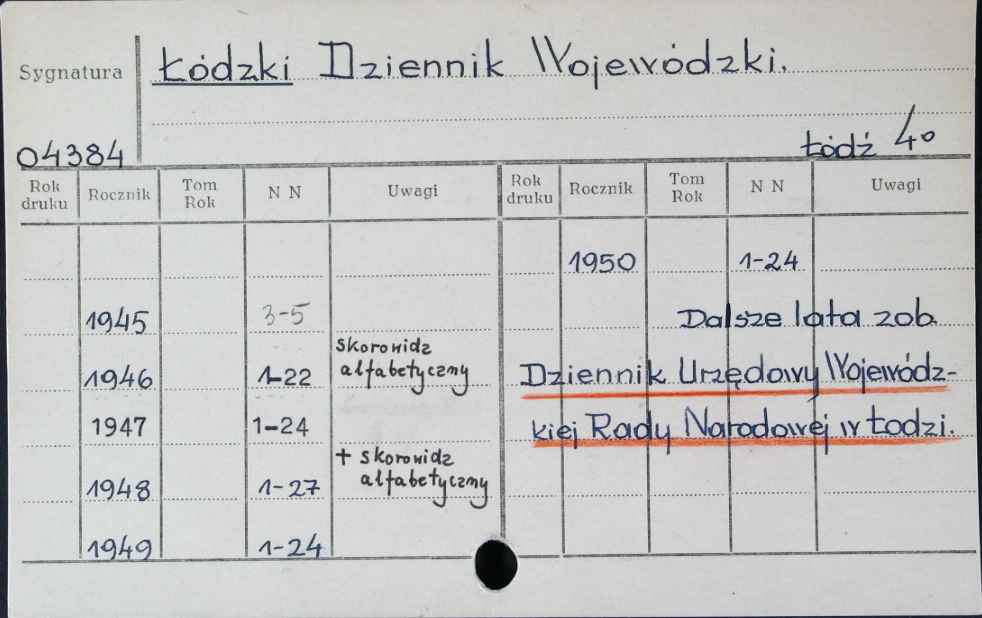 Sygnatura
Łódzki Dziennik Wojewódzki.
04384
Łódź 4o
Rok druku Rocznik Tom Rok N N Uwagi Rok druku Rocznik Tom Rok N N Uwagi
1950 1-24
1945 3-5
Dalsze lata zob.
skorowidz
1946 1-22 alfabetyczny
Dziennik Urzędowy Wojewódz-
1947 1-24
kiej Rady Narodowej w Łodzi.
+ skorowidz
1948 1-27 alfabetyczny
1949 1-24